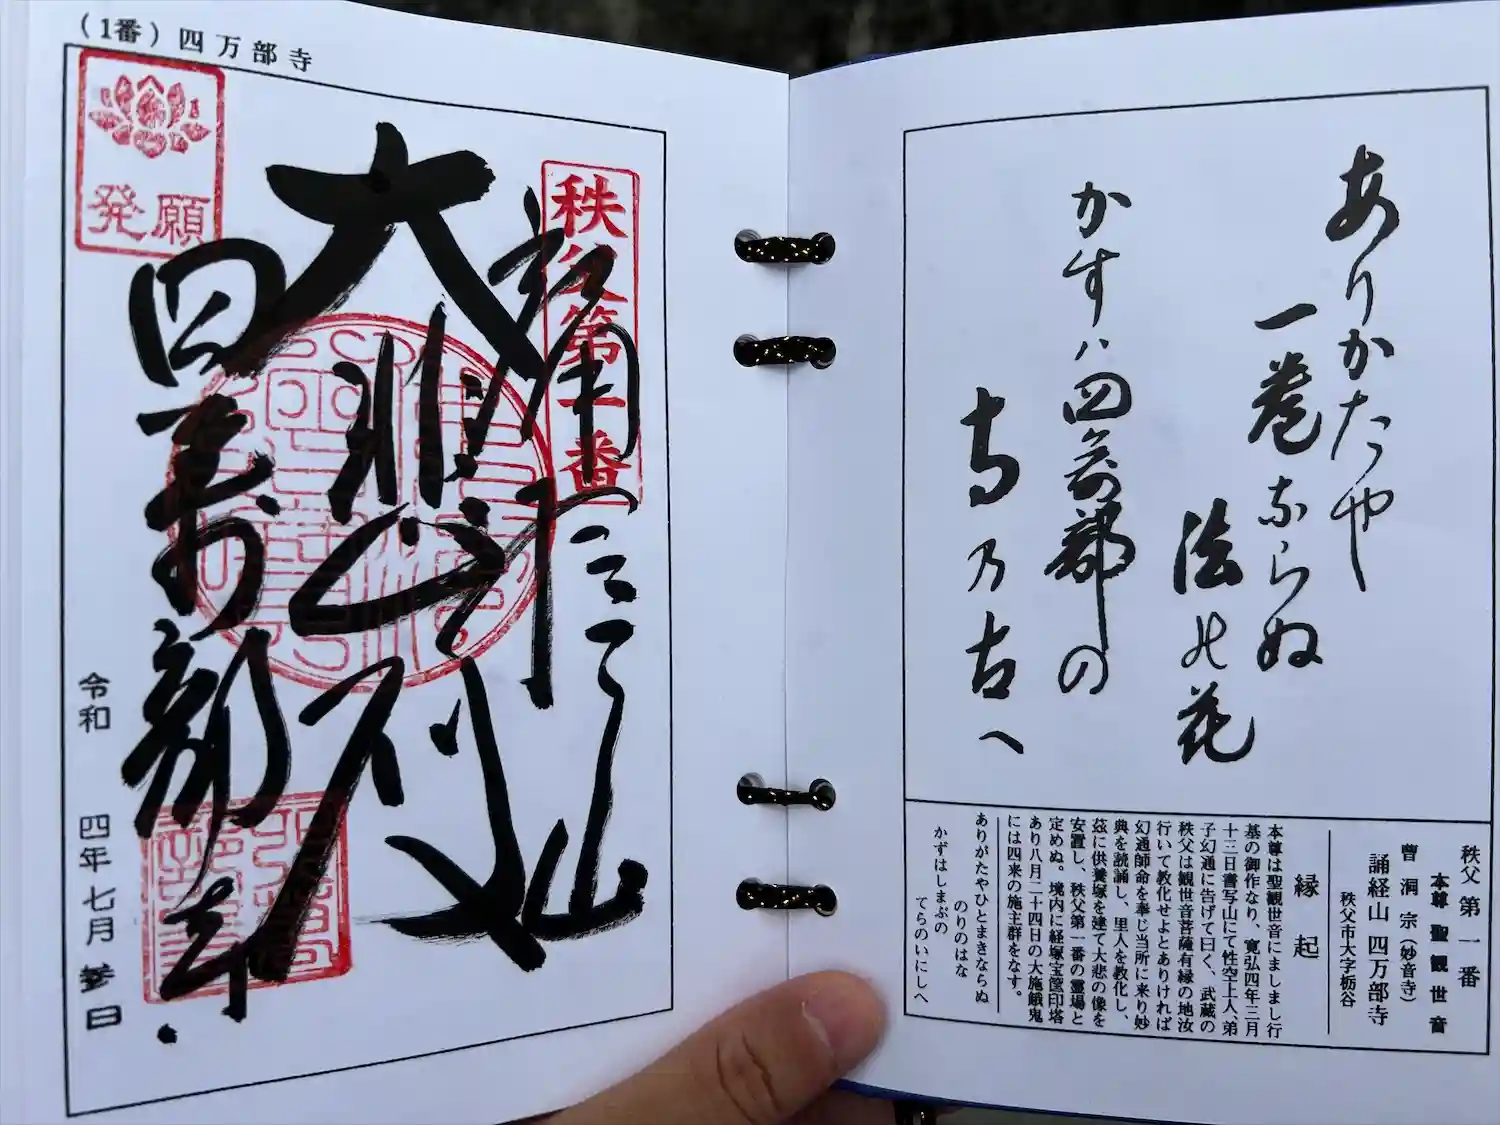 （1番）四万部寺
発願
秩父第一番
誦経山
大悲殿
四萬部寺
令和 四年七月参日
ありかたや
一巻ならぬ
法の花
かすハ四萬部の
寺乃古へ
秩父第一番
本尊 聖観世音
曹洞宗（妙音寺）
誦経山 四万部寺
秩父市大字栃谷
縁起
本尊は聖観世音にましまし行
基の御作なり、寛弘四年三月
十三日書写山にて性空上人、弟
子幻通に告げて曰く、武蔵の
秩父は観世音菩薩有縁の地汝
行いて教化せよとありければ
幻通師命を奉じ当所に来り妙
典を読誦し、里人を教化し、
茲に供養塚を建て大悲の像を
安置し、秩父第一番の霊場と
定めぬ。境内に経塚宝篋印塔
あり八月二十四日の大施餓鬼
には四来の施主群をなす。
ありがたやひとまきならぬ
のりのはな
かずはしまぶの
てらのいにしへ